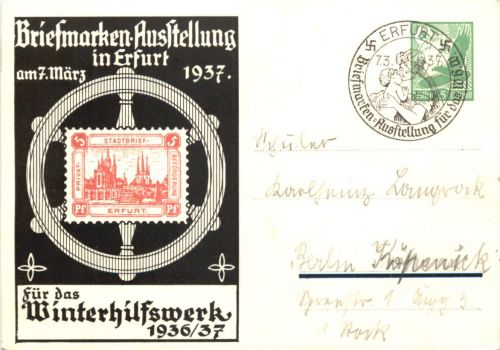 Briefmarken-Ausstellung
in Erfurt
am 7. März 1937.
5 STADTBRIEF- 5
PRIVAT-
BEFÖRDERUNG
Pf ERFURT. Pf
Für das
Winterhilfswerk
1936/37
ERFURT
7.3. 37
Briefmarken-Ausstellung für das W.H.W.
5
Schüler
Karlheinz Langrock
Berlin Köpenick
1 Stock